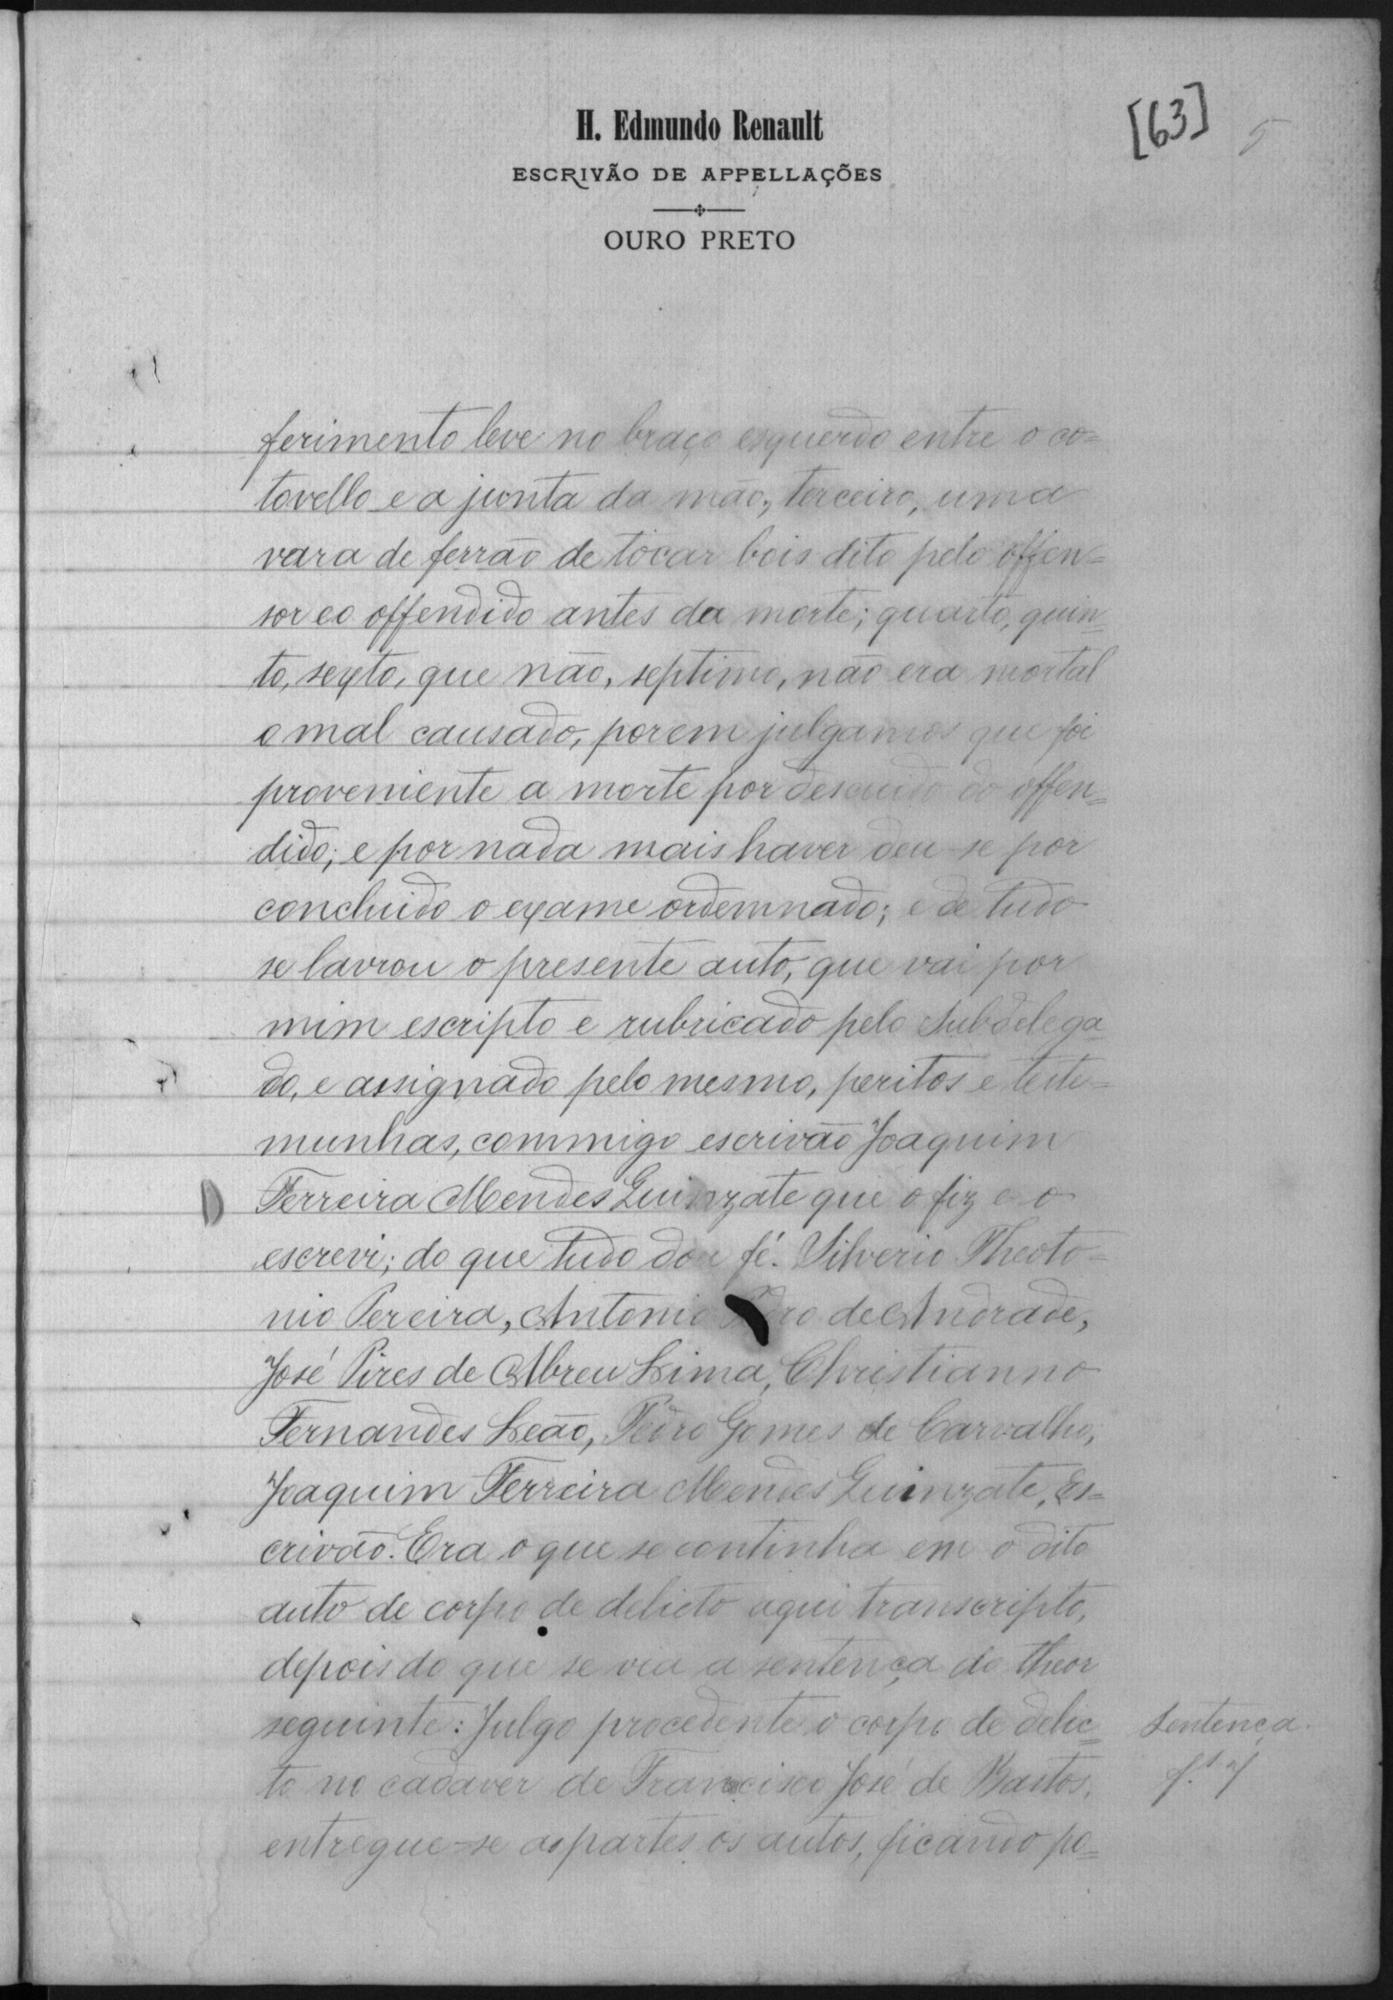 H. Edmundo Renault
ESCRIVÃO DE APPELLAÇÕES
OURO PRETO
[63]
5
ferimento leve no braço esquerdo entre o co=
tovello e a junta da mão; terceiro, uma
vara de ferrão de tocar bois dito pelo offen=
sor eo offendido antes da morte; quarto, quin=
to, sexto, que não, septimo, não era mortal
o mal causado, porem julgamos que foi
proveniente a morte por descuido do offen=
dido; e por nada mais haver deu-se por
concluido o exame ordemnado; e de tudo
se lavrou o presente auto, que vai por
mim escripto e rubricado pelo Subdelega
do, e assignado pelo mesmo, peritos e teste=
munhas, commigo escrivão Joaquim
Ferreira Mendes Guinzate que o fiz e o
escrevi; do que tudo dou fé. Silverio Theoto=
nio Pereira, Antonio de Andrade,
José Pires de Abreu Lima, Christianno
Fernandes Leão, Pedro Gomes de Carvalho,
Joaquim Ferreira Mendes Guinzate, Es=
crivão. Era o que se continha em o dito
auto de corpo de delicto aqui transcripto,
depois do que se via a sentença do theor
seguinte: Julgo procedente o corpo de delic=
to no cadaver de Francisco José de Bastos,
entregue-se as partes os autos, ficando po=
Sentença.